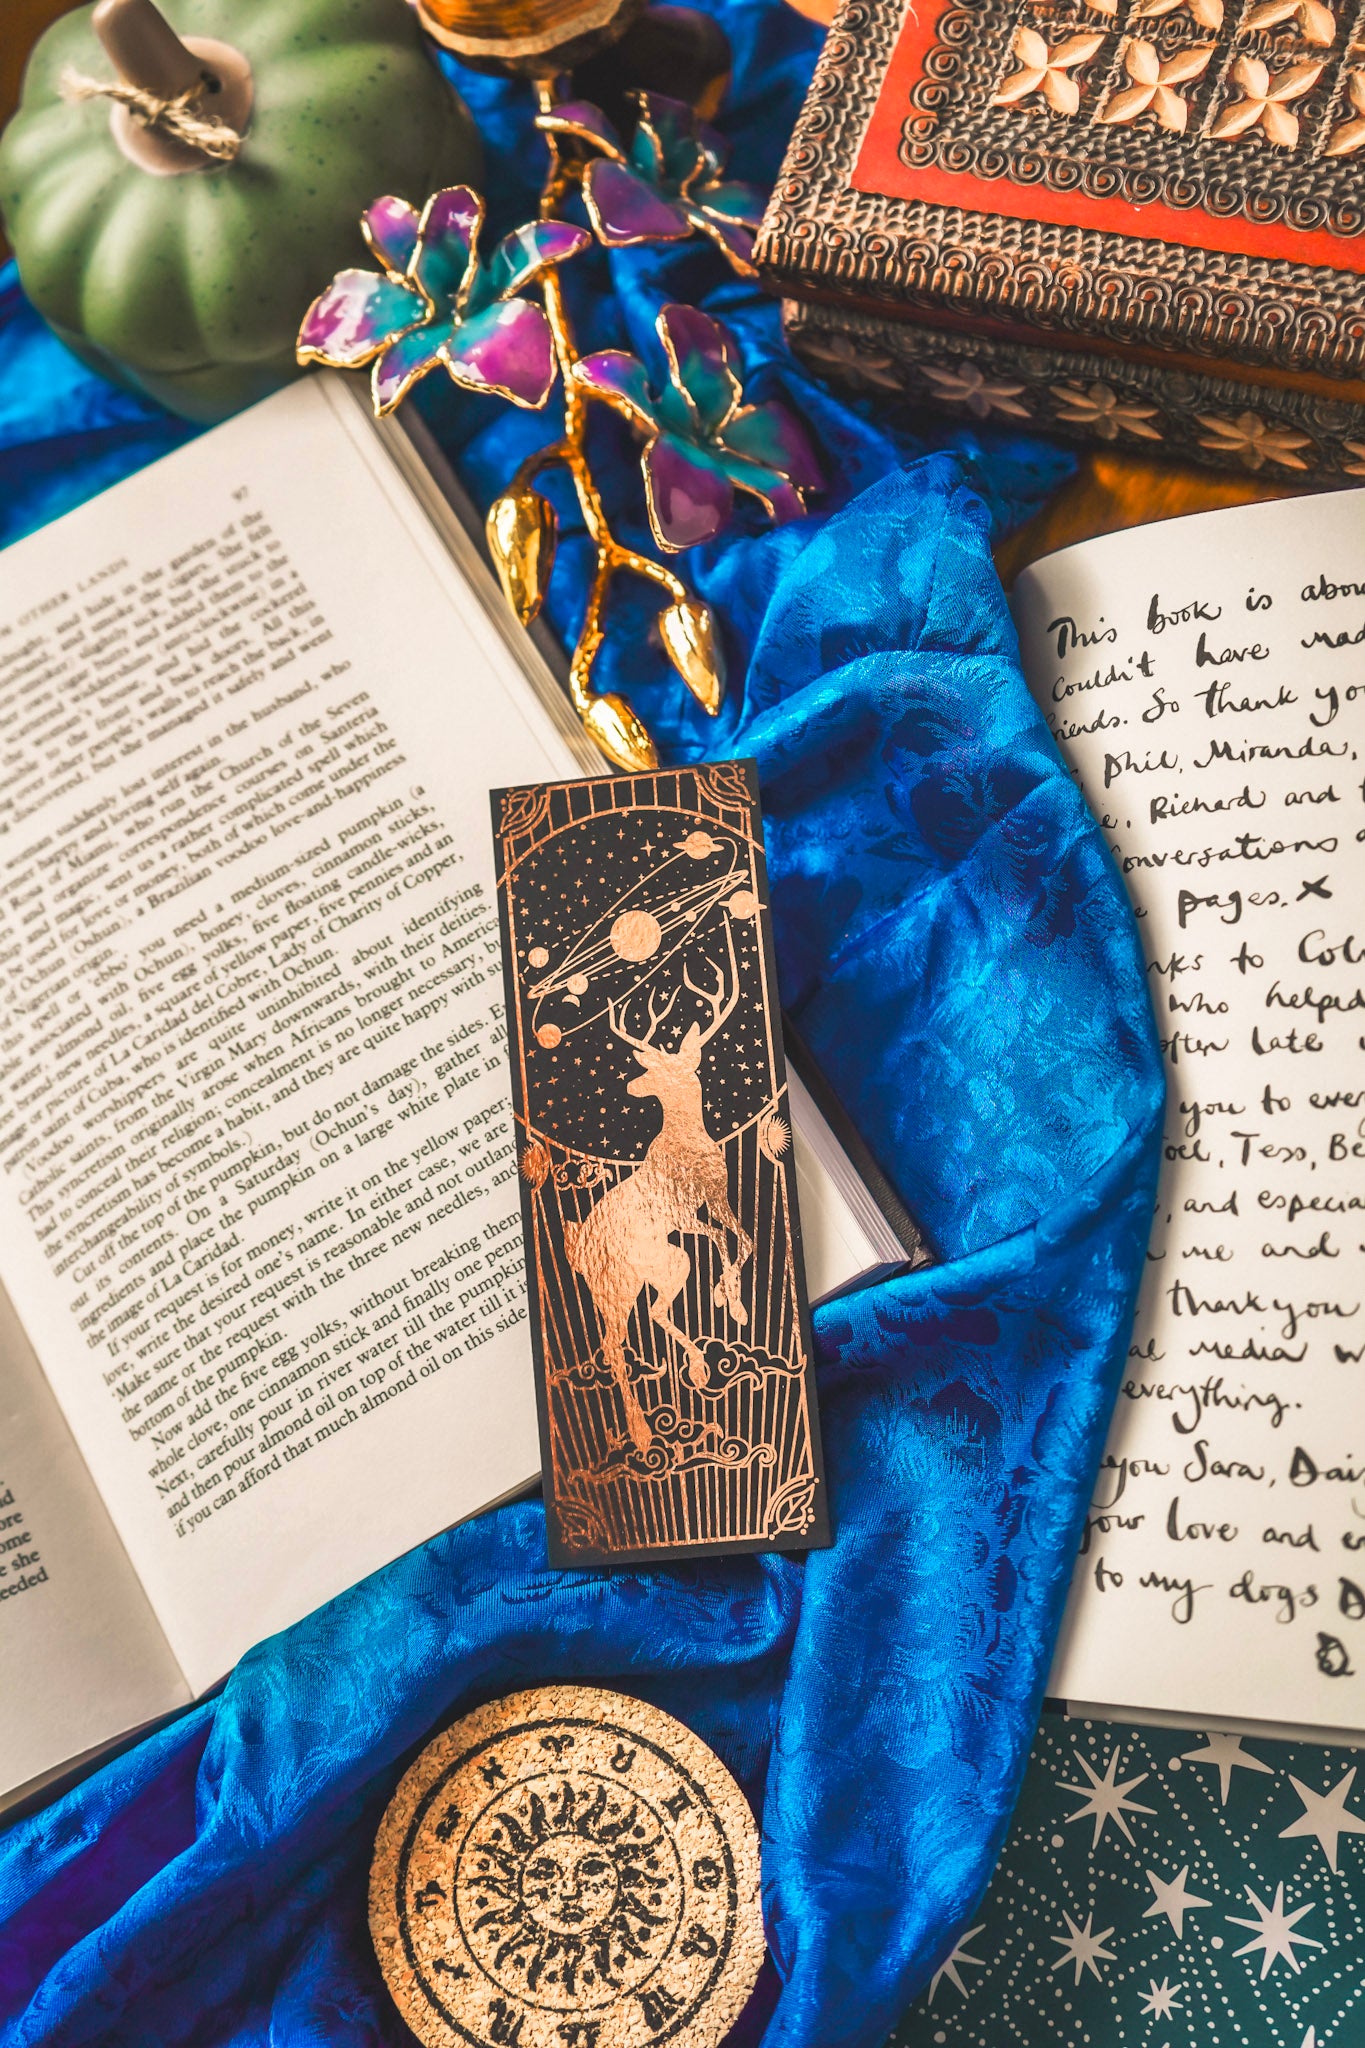 97
OTHER LANDS
and hide in the garden of the
husband, and smoke the cigars. She felt
slightly sick, but she had the knack to
own cigar butts and added them to the
and hid the corkscrew) in a
the front and back doors. All this
people's walls to reach the back, in
discovered, but she managed it safely and went
woman suddenly lost interest in the husband, who
former happy and loving self again.
of Miami, who run the Church of the Seven
and organize correspondence courses on Santeria
and magic, sent us a rather complicated spell which
be used for love or money, both of which come under the
of Ochun (or Oshun), a Brazilian voodoo love-and-happiness
of Nigerian origin.
this spell or 'ebbo' you need a medium-sized pumpkin (a
able associated with Ochun), honey, cloves, cinnamon sticks,
water, almond oil, five egg yolks, five floating candle-wicks,
brand-new needles, a square of yellow paper, five pennies and an
image or picture of La Caridad del Cobre, Lady of Charity of Copper,
patron saint of Cuba, who is identified with Ochun.
Voodoo worshippers are quite uninhibited about identifying
Catholic saints, from the Virgin Mary downwards, with their deities.
This syncretism originally arose when Africans brought to America
had to conceal their religion; concealment is no longer necessary, bu
the syncretism has become a habit, and they are quite happy with su
interchangeability of symbols.)
Cut off the top of the pumpkin, but do not damage the sides. E
out its contents. On a Saturday (Ochun's day), gather all
ingredients and place the pumpkin on a large white plate in f
the image of La Caridad.
If your request is for money, write it on the yellow paper;
love, write the desired one's name. In either case, we are
'Make sure that your request is reasonable and not outland
the name or the request with the three new needles, and
bottom of the pumpkin.
Now add the five egg yolks, without breaking them
whole clove, one cinnamon stick and finally one penn
Next, carefully pour in river water till the pumpkin
and then pour almond oil on top of the water till it is
if you can afford that much almond oil on this side
ore
ome
e she
eeded
This book is abou
Couldn't have mad
friends. So thank yo
Phil, Miranda,
Richard and
Conversations
pages. x
nks to
who helped
often late
you to ever
Joel, Tess, Be
and especia
me and
thank you
al media w
everything.
you Sara, Dai
your love and en
to my dogs